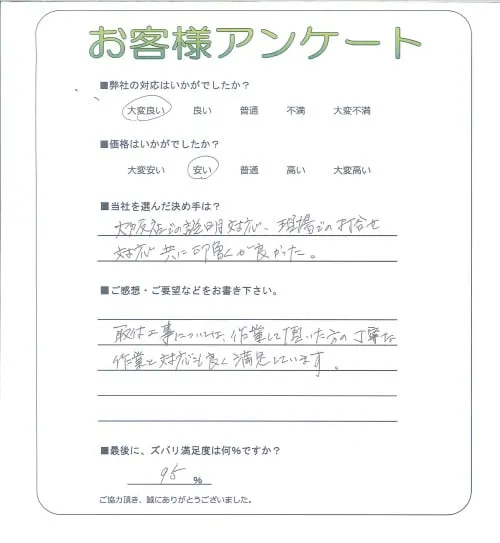 お客様アンケート
■弊社の対応はいかがでしたか?
大変良い 良い 普通 不満 大変不満
■価格はいかがでしたか?
大変安い 安い 普通 高い 大変高い
■当社を選んだ決め手は?
大阪店での説明対応、現場での打合せ
対応共に印象が良かった。
■ご感想・ご要望などをお書き下さい。
取付工事については、作業して頂いた方の丁寧な
作業と対応も良く満足しています。
■最後に、ズバリ満足度は何%ですか?
95 %
ご協力頂き、誠にありがとうございました。